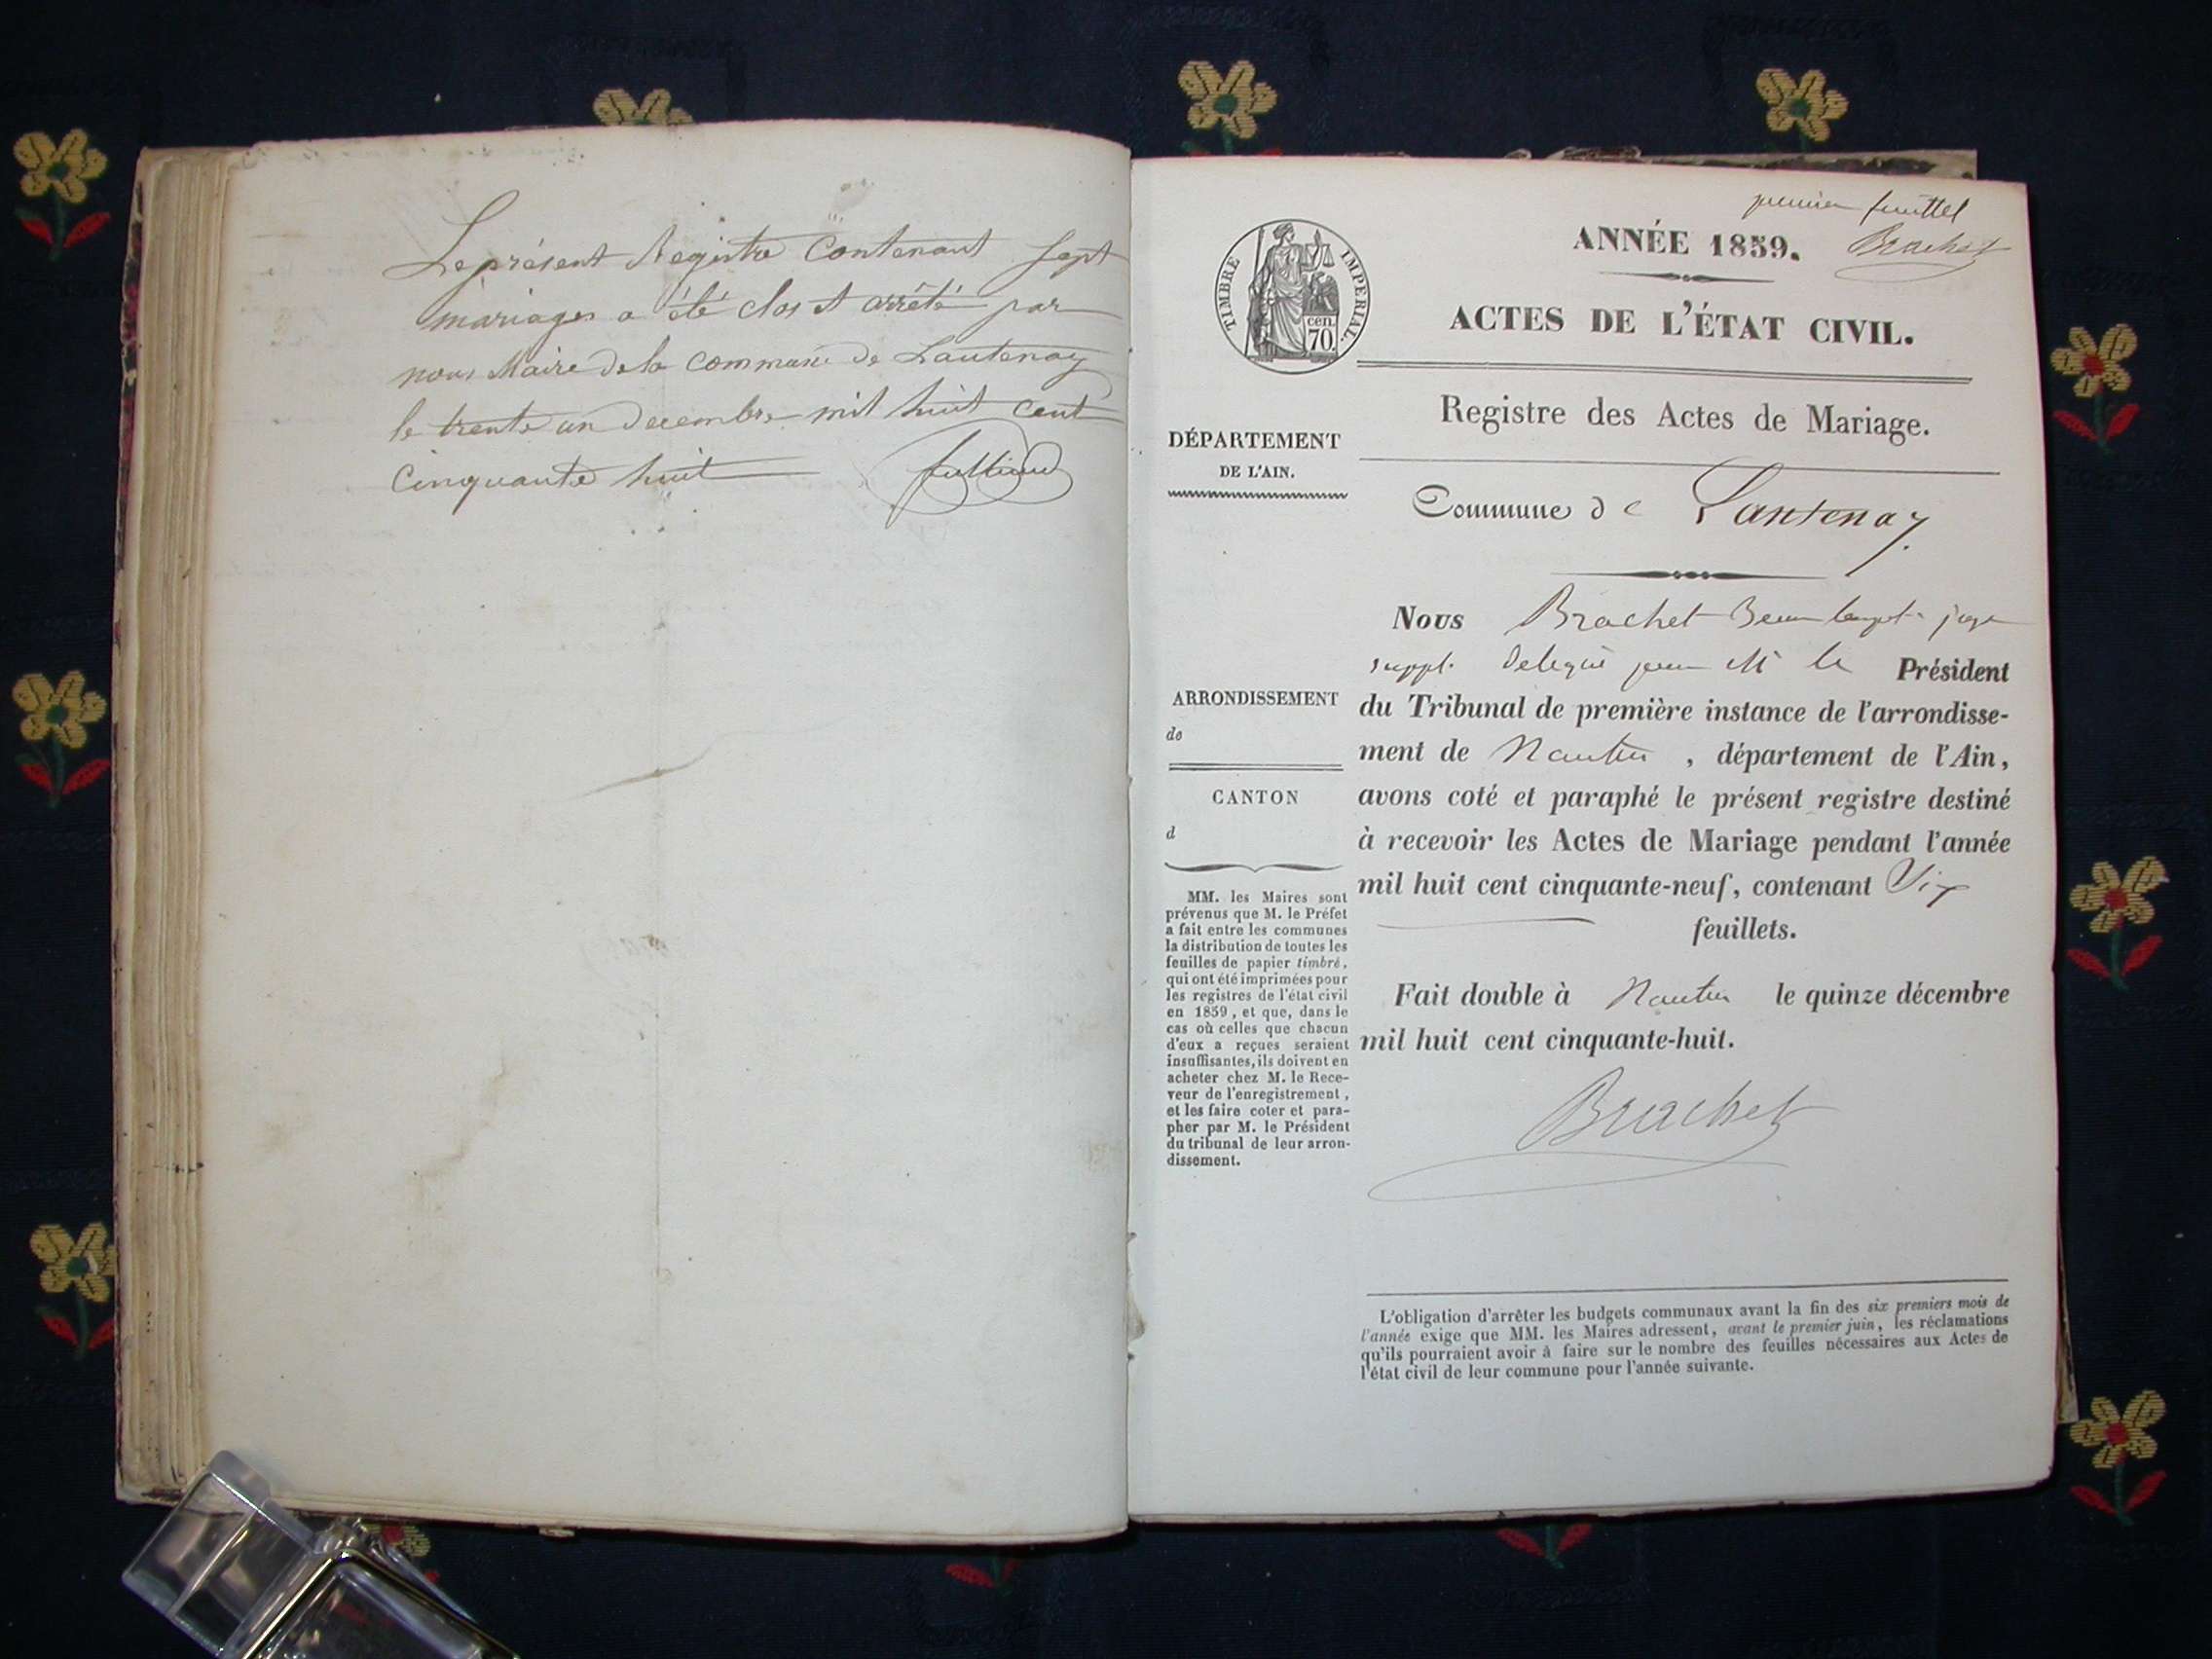 Le présent Registre Contenant Sept
mariages a été clos et arrêté par
nous Maire de la commune de Lantenay
le trente un decembre mil huit cent
cinquante huit
premier feuillet
ANNÉE 1859.
Brachet
TIMBRE IMPERIAL.
cen.
70.
ACTES DE L'ÉTAT CIVIL.
Registre des Actes de Mariage.
DÉPARTEMENT
DE L'AIN.
Commune de Lantenay.
ARRONDISSEMENT
de
CANTON
d
MM. les Maires sont
prévenus que M. le Préfet
a fait entre les communes
la distribution de toutes les
feuilles de papier timbré,
qui ont été imprimées pour
les registres de l'état civil
en 1859, et que, dans le
cas où celles que chacun
d'eux a reçues seraient
insuffisantes, ils doivent en
acheter chez M. le Rece-
veur de l'enregistrement,
et les faire coter et para-
pher par M. le Président
du tribunal de leur arron-
dissement.
Nous Brachet juge
suppl. délégué pour M le Président
du Tribunal de première instance de l'arrondisse-
ment de Nantua, département de l'Ain,
avons coté et paraphé le présent registre destiné
à recevoir les Actes de Mariage pendant l'année
mil huit cent cinquante-neuf, contenant Six
feuillets.
Fait double à Nantua le quinze décembre
mil huit cent cinquante-huit.
Brachet
L'obligation d'arrêter les budgets communaux avant la fin des six premiers mois de
l'année exige que MM. les Maires adressent, avant le premier juin, les réclamations
qu'ils pourraient avoir à faire sur le nombre des feuilles nécessaires aux Actes de
l'état civil de leur commune pour l'année suivante.